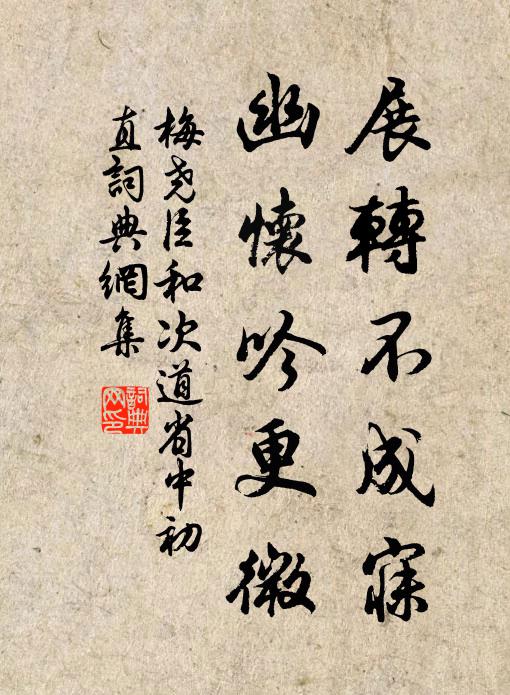 展轉不成寐
幽懷吟更微
梅堯臣和次道省中初
直詞典網集
詞典
网印